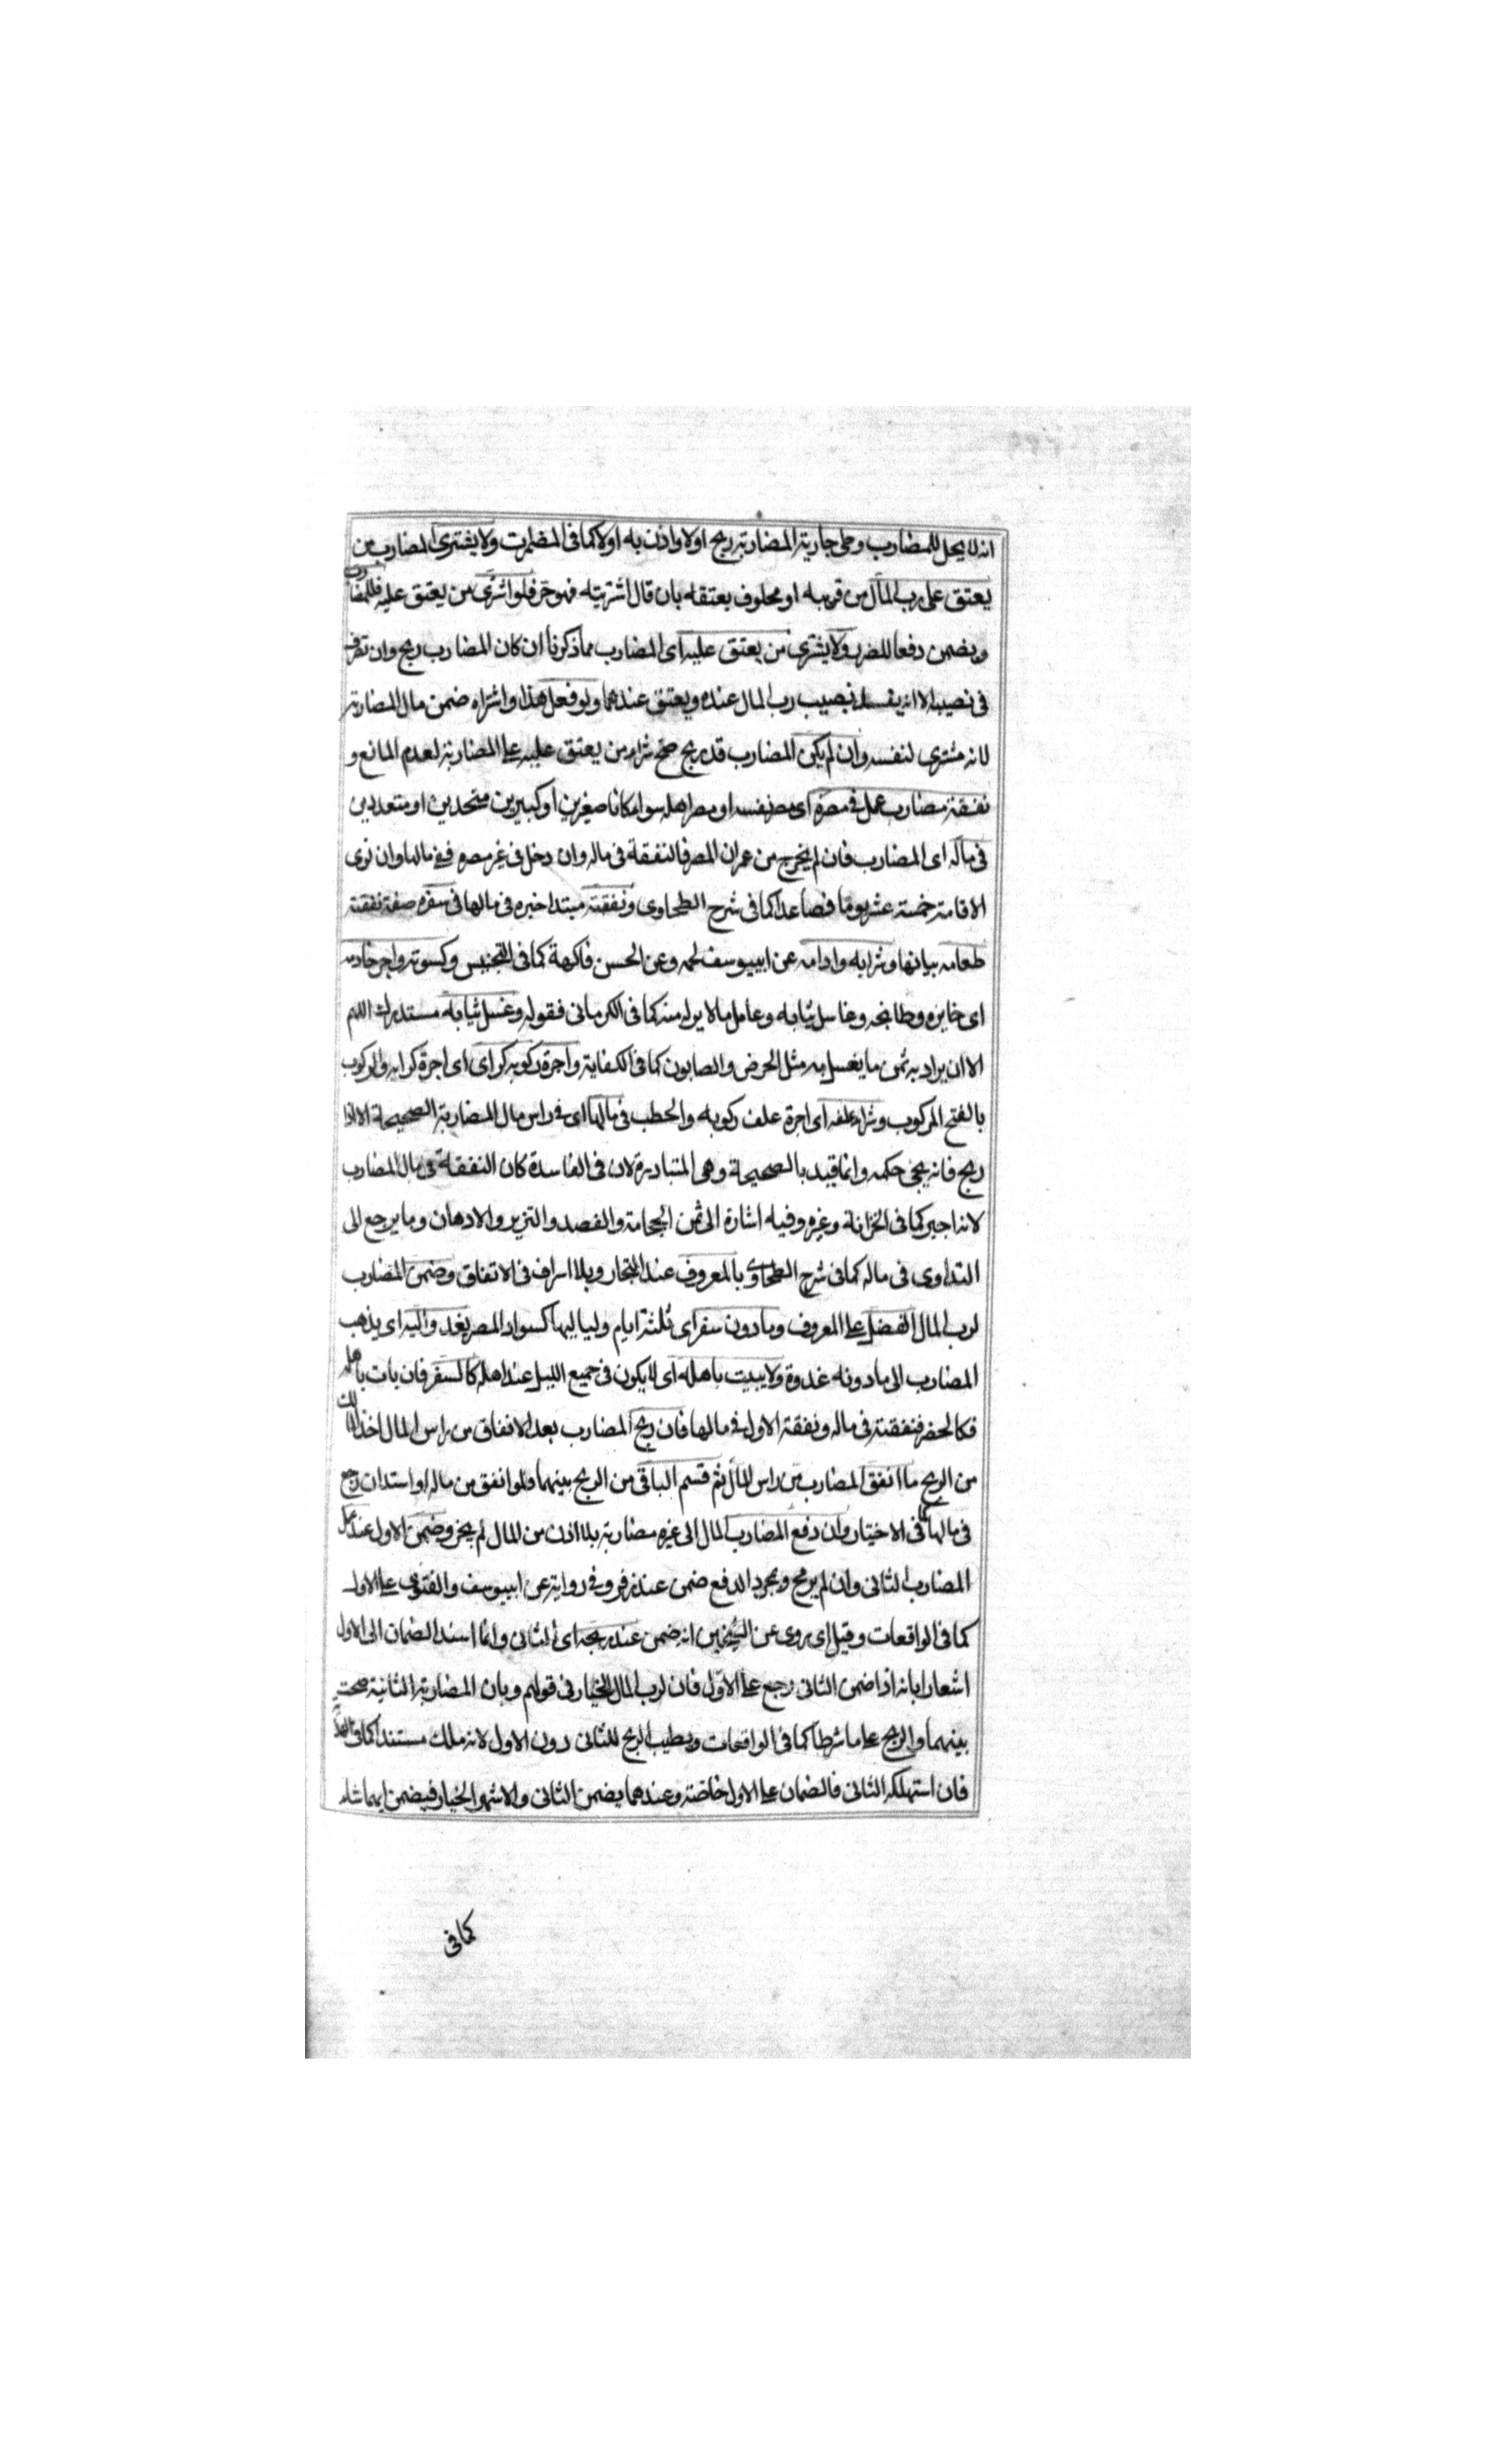 انه لا يحل للمضارب وطى جارية المضاربة ربح اولا واذن به اولا كما فى المضمرات ولا يشترى المضارب من
يعتق على رب المال من قريبه او محلوف بعتقه بان قال اشتريته فهو حر فلو اشترى من يعتق عليه فللمضارب
ويضمن دفعا للضرر ولا يشترى من يعتق عليه اى المضارب مما ذكرنا ان كان المضارب ربح وان تصرف
فى نصيبه الا انه يفسد نصيب رب المال عنده ويعتق عندهما ولو فعل هذا واشتراه ضمن مال المضاربة
لانه مشترى لنفسه وان لم يكن المضارب قد ربح صح شراء من يعتق عليه على المضاربة لعدم المانع و
نفقة مضارب عمل فى مصره اى مصر نفسه او مصر اهله سواء كانا صغيرين او كبيرين متحدين او متعددين
فى ماله اى المضارب فان لم يخرج من عمران المصر فالنفقة فى ماله وان دخل فى غير مصره ففى مالها وان نوى
الاقامة خمسة عشر يوما فصاعدا كما فى شرح الطحاوى ونفقته مبتدا خبره فى مالها فى سفره صفة نفقته
طعامه بيانها وشرابه وادامه عن ابييوسف لحمه وعن الحسن فاكهة كما فى التجنيس وكسوته واجر خادمه
اى خابزه وطابخه وغاسل ثيابه وعامل ما لا بد له منه كما فى الكرمانى فقوله وغسل ثيابه مستدرك اللهم
الا ان يراد به ثمن ما يغسل به مثل الحرض والصابون كما فى الكفاية واجرة ركوبه كراى اى اجرة كرايه والركوب
بالفتح المركوب وشراء علفه اى اجرة علف ركوبه والحطب فى مالها اى فى راس مال المضاربة الصحيحة الا اذا
ربح فانه يجئ حكمه وانما قيد بالصحيحة وهى المتبادرة لان فى الفاسدة كان النفقة فى مال المضارب
لانه اجير كما فى الخزانة وغيره وفيه اشارة الى ثمن الحجامة والفصد والتنوير والادهان وما يرجع الى
التداوى فى ماله كما فى شرح الطحاوى بالمعروف عند التجار وبلا اسراف فى الانفاق وضمن المضارب
لرب المال الفضل على المعروف وما دون سفر اى ثلثة ايام ولياليها كسواد المصر يغدو اليه اى يذهب
المضارب الى ما دونه غدوة ولا يبيت باهله اى لا يكون فى جميع الليل عند اهله كالسفر فان بات باهله
فكالحضر فنفقته فى ماله ونفقة الاول فى مالها فان ربح المضارب بعد الانفاق من راس المال اخذ المالك
من الربح ما انفق المضارب من راس المال ثم قسم الباقى من الربح بينهما ولو انفق من ماله او استدان رجع
فى مالها كما فى الاختيار وان دفع المضارب المال الى غيره مضاربة بلا اذن من المال لم يجز وضمن الاول عند عمل
المضارب الثانى وان لم يربح وبمجرد الدفع ضمن عند زفر وفى رواية عن ابييوسف والفتوى على الاول
كما فى الواقعات وقيل اى يروى عن الشيخين انه ضمن عند ربحه اى الثانى وانما اسند الضمان الى الاول
اشعارا بانه اذا ضمن الثانى رجع على الاول فان لرب المال الخيار فى قولهم وبان المضاربة الثانية صحت
بينهما والربح على ما شرطا كما فى الواقعات ويطيب الربح للثانى دون الاول لانه ملك مستندا كما فى
فان استهلكه الثانى فالضمان على الاول خاصة وعندهما يضمن الثانى والاشهر الخيار فيضمن ايهما شاء
كما فى